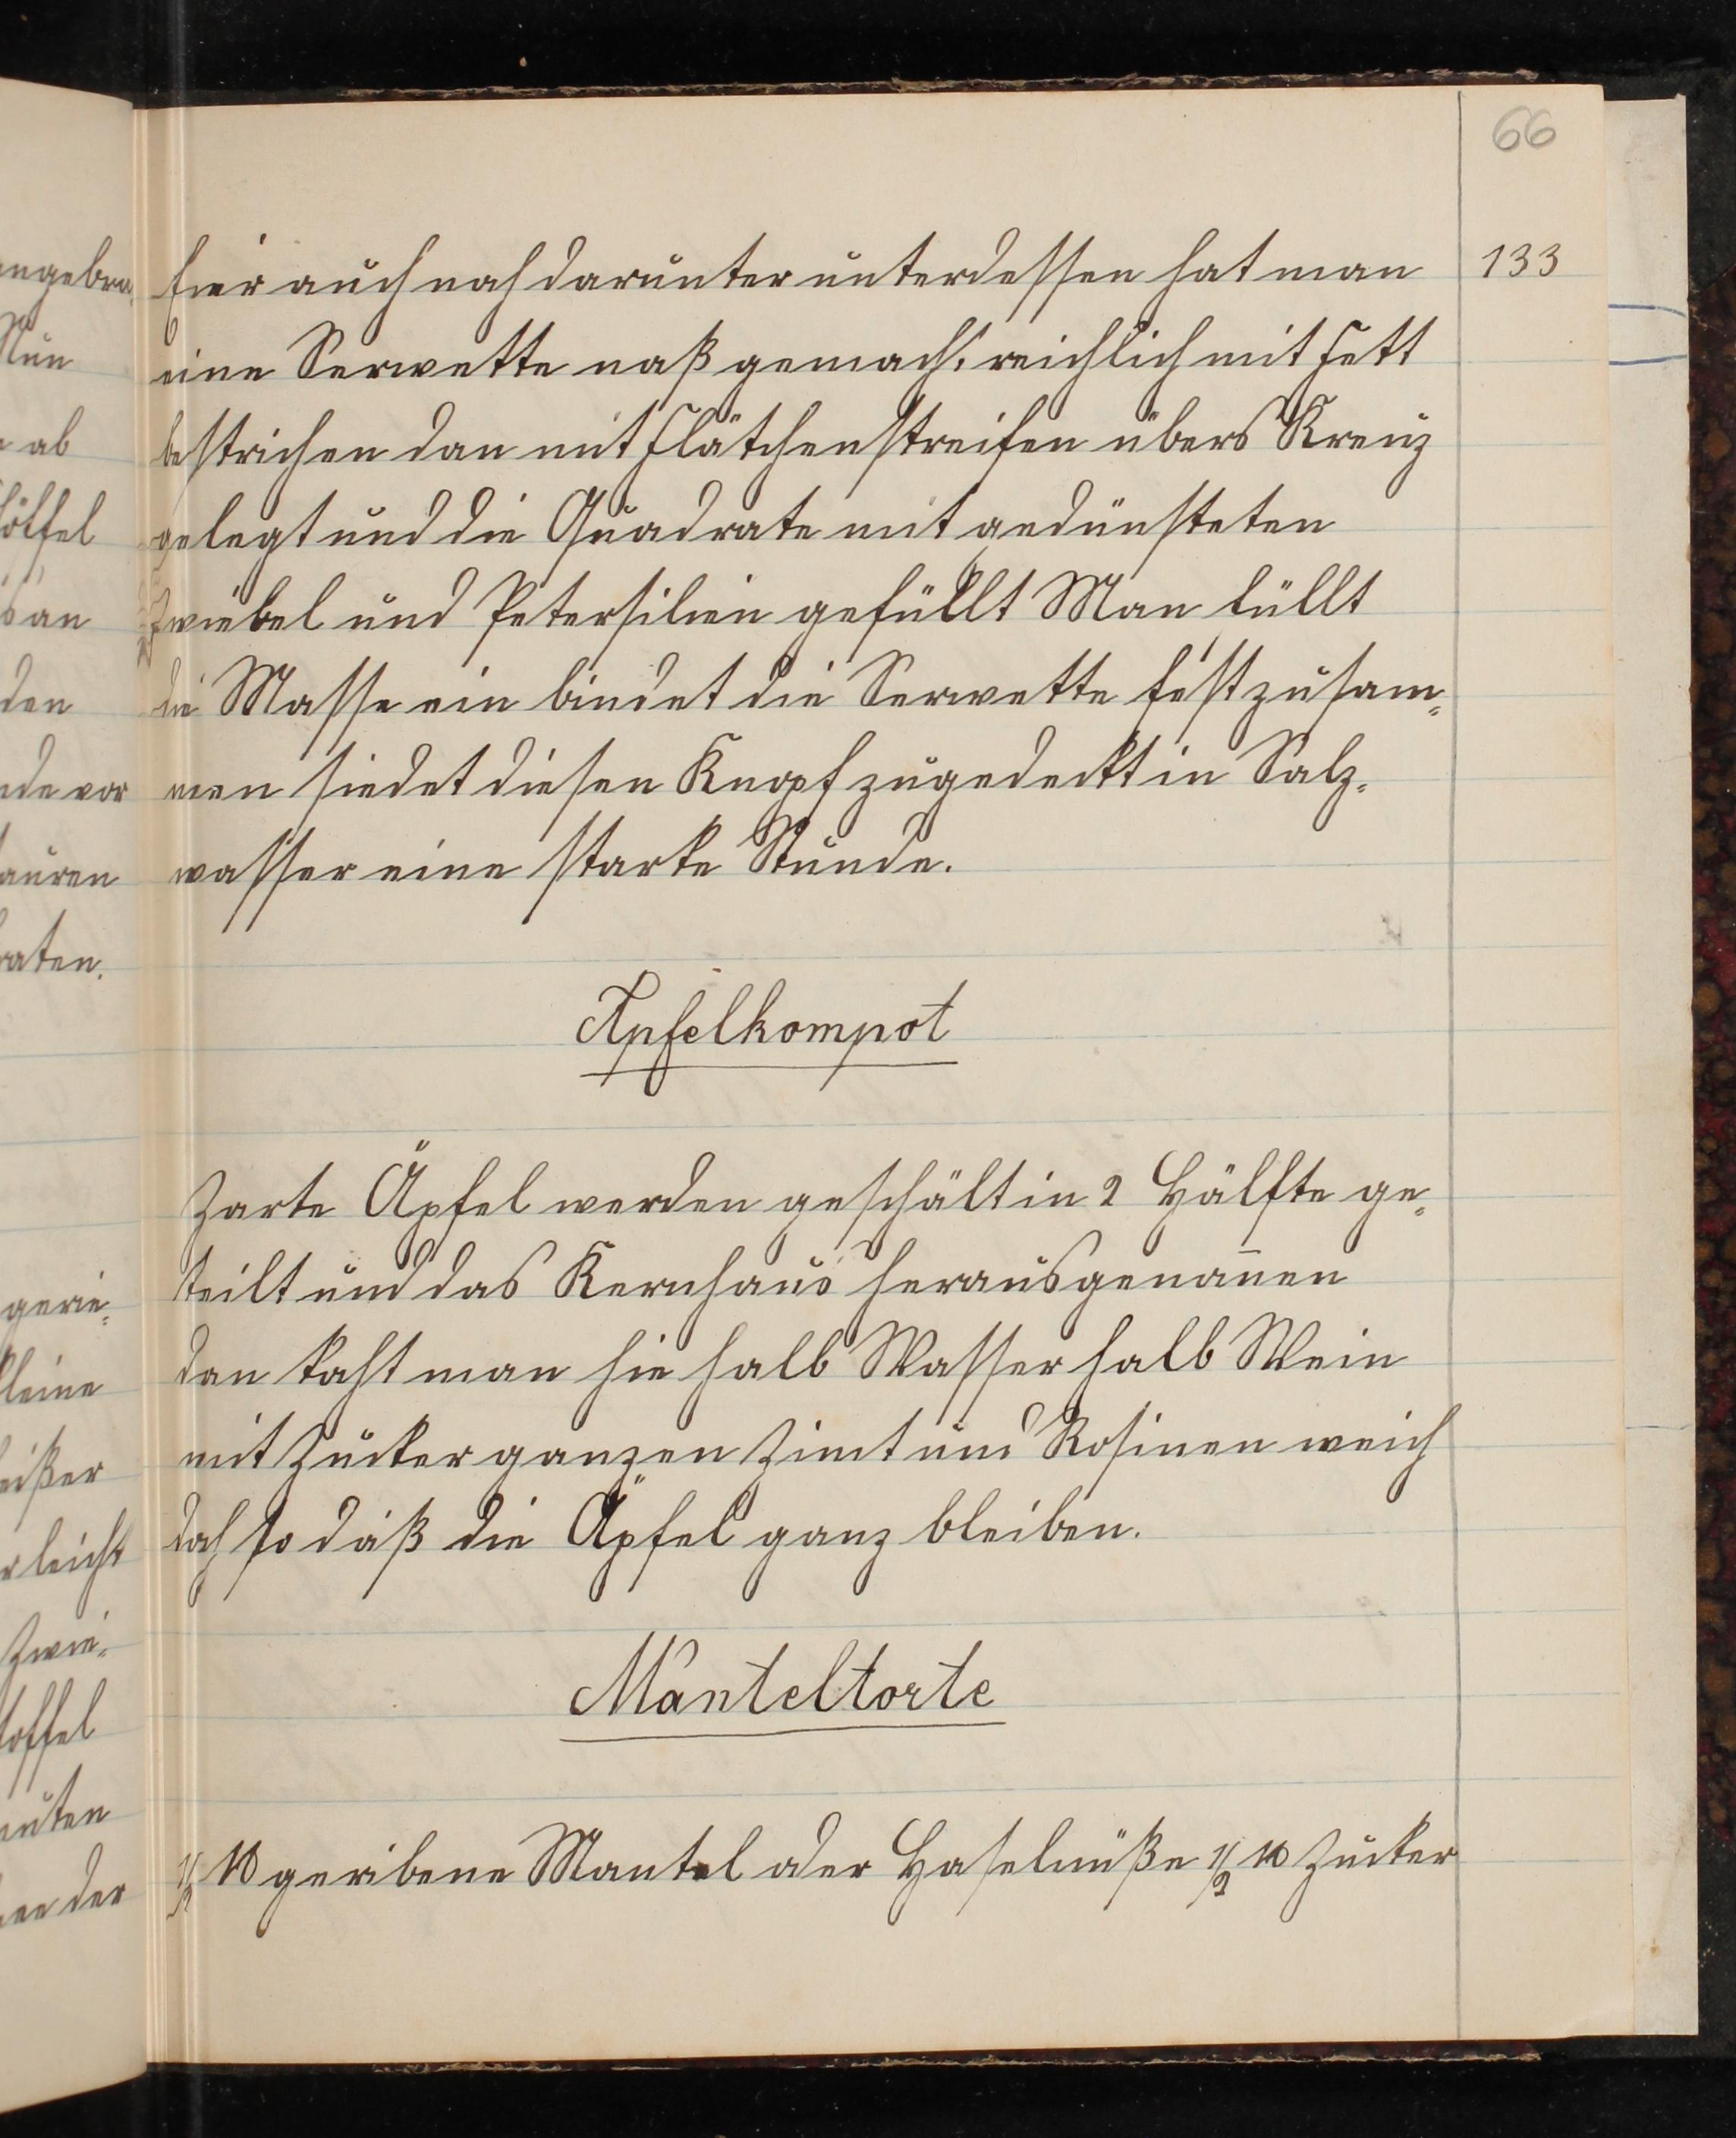 66
133
Eier auch noch darunter unterdessen hat man
eine Serwette naß gemacht reichlich mit Fett
bestrichen dan mit Flätchenstreifen übers Kreuz
gelegt und die Quadrate mit gedünsteten
Zwiebel und Petersilien gefüllt Man füllt
die Masse ein bindet die Serwette fest zusam„
men siedet diesen Knopf zugedeckt in Salz„
wasser eine starke Stunde.
Apfelkompot
Zarte Äpfel werden geschält in 2 Hälfte ge„
teilt und das Kernhaus herausgenom̅en
dan kocht man sie halb Wasser halb Wein
mit Zucker ganzen Zimt und Rosinen weich
doch so daß die Äpfel ganz bleiben.
Manteltorte
1/2 ℔ geribene Mantel oder Haselnüße 1/2 ℔ Zucker